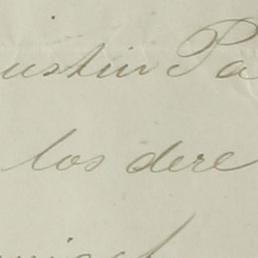 ustin Pa
los dere